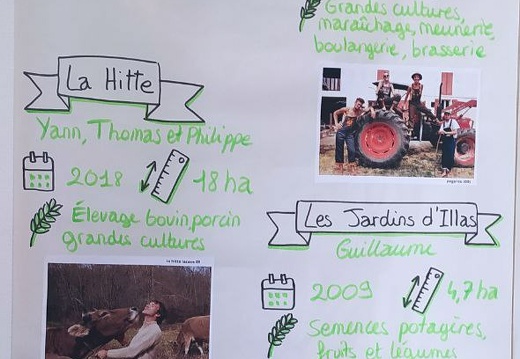 Grandes cultures,
maraîchage, meunerie,
boulangerie, brasserie
La Hitte
Yann, Thomas et Philippe
2018
18 ha
Élevage bovin, porcin
grandes cultures
Les Jardins d'Illas
Guillaume
2009
4,7 ha
Semences potagères,
fruits et légumes